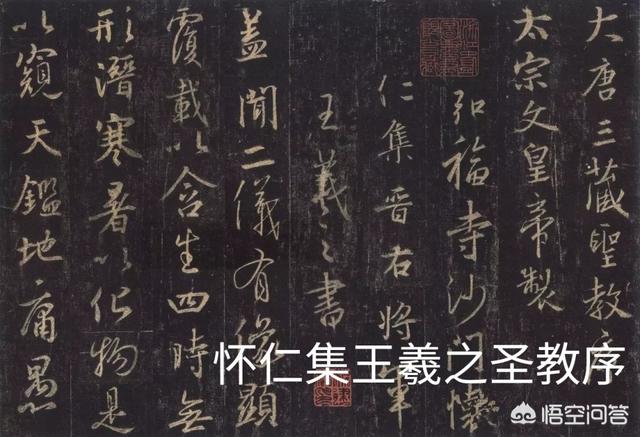 大唐三藏聖教序
太宗文皇帝製
弘福寺沙門懷
仁集晉右將軍
王羲之書
蓋聞二儀有像顯
覆載以含生四時無
形潛寒暑以化物是
以窺天鑑地庸愚
怀仁集王羲之圣教序
悟空问答